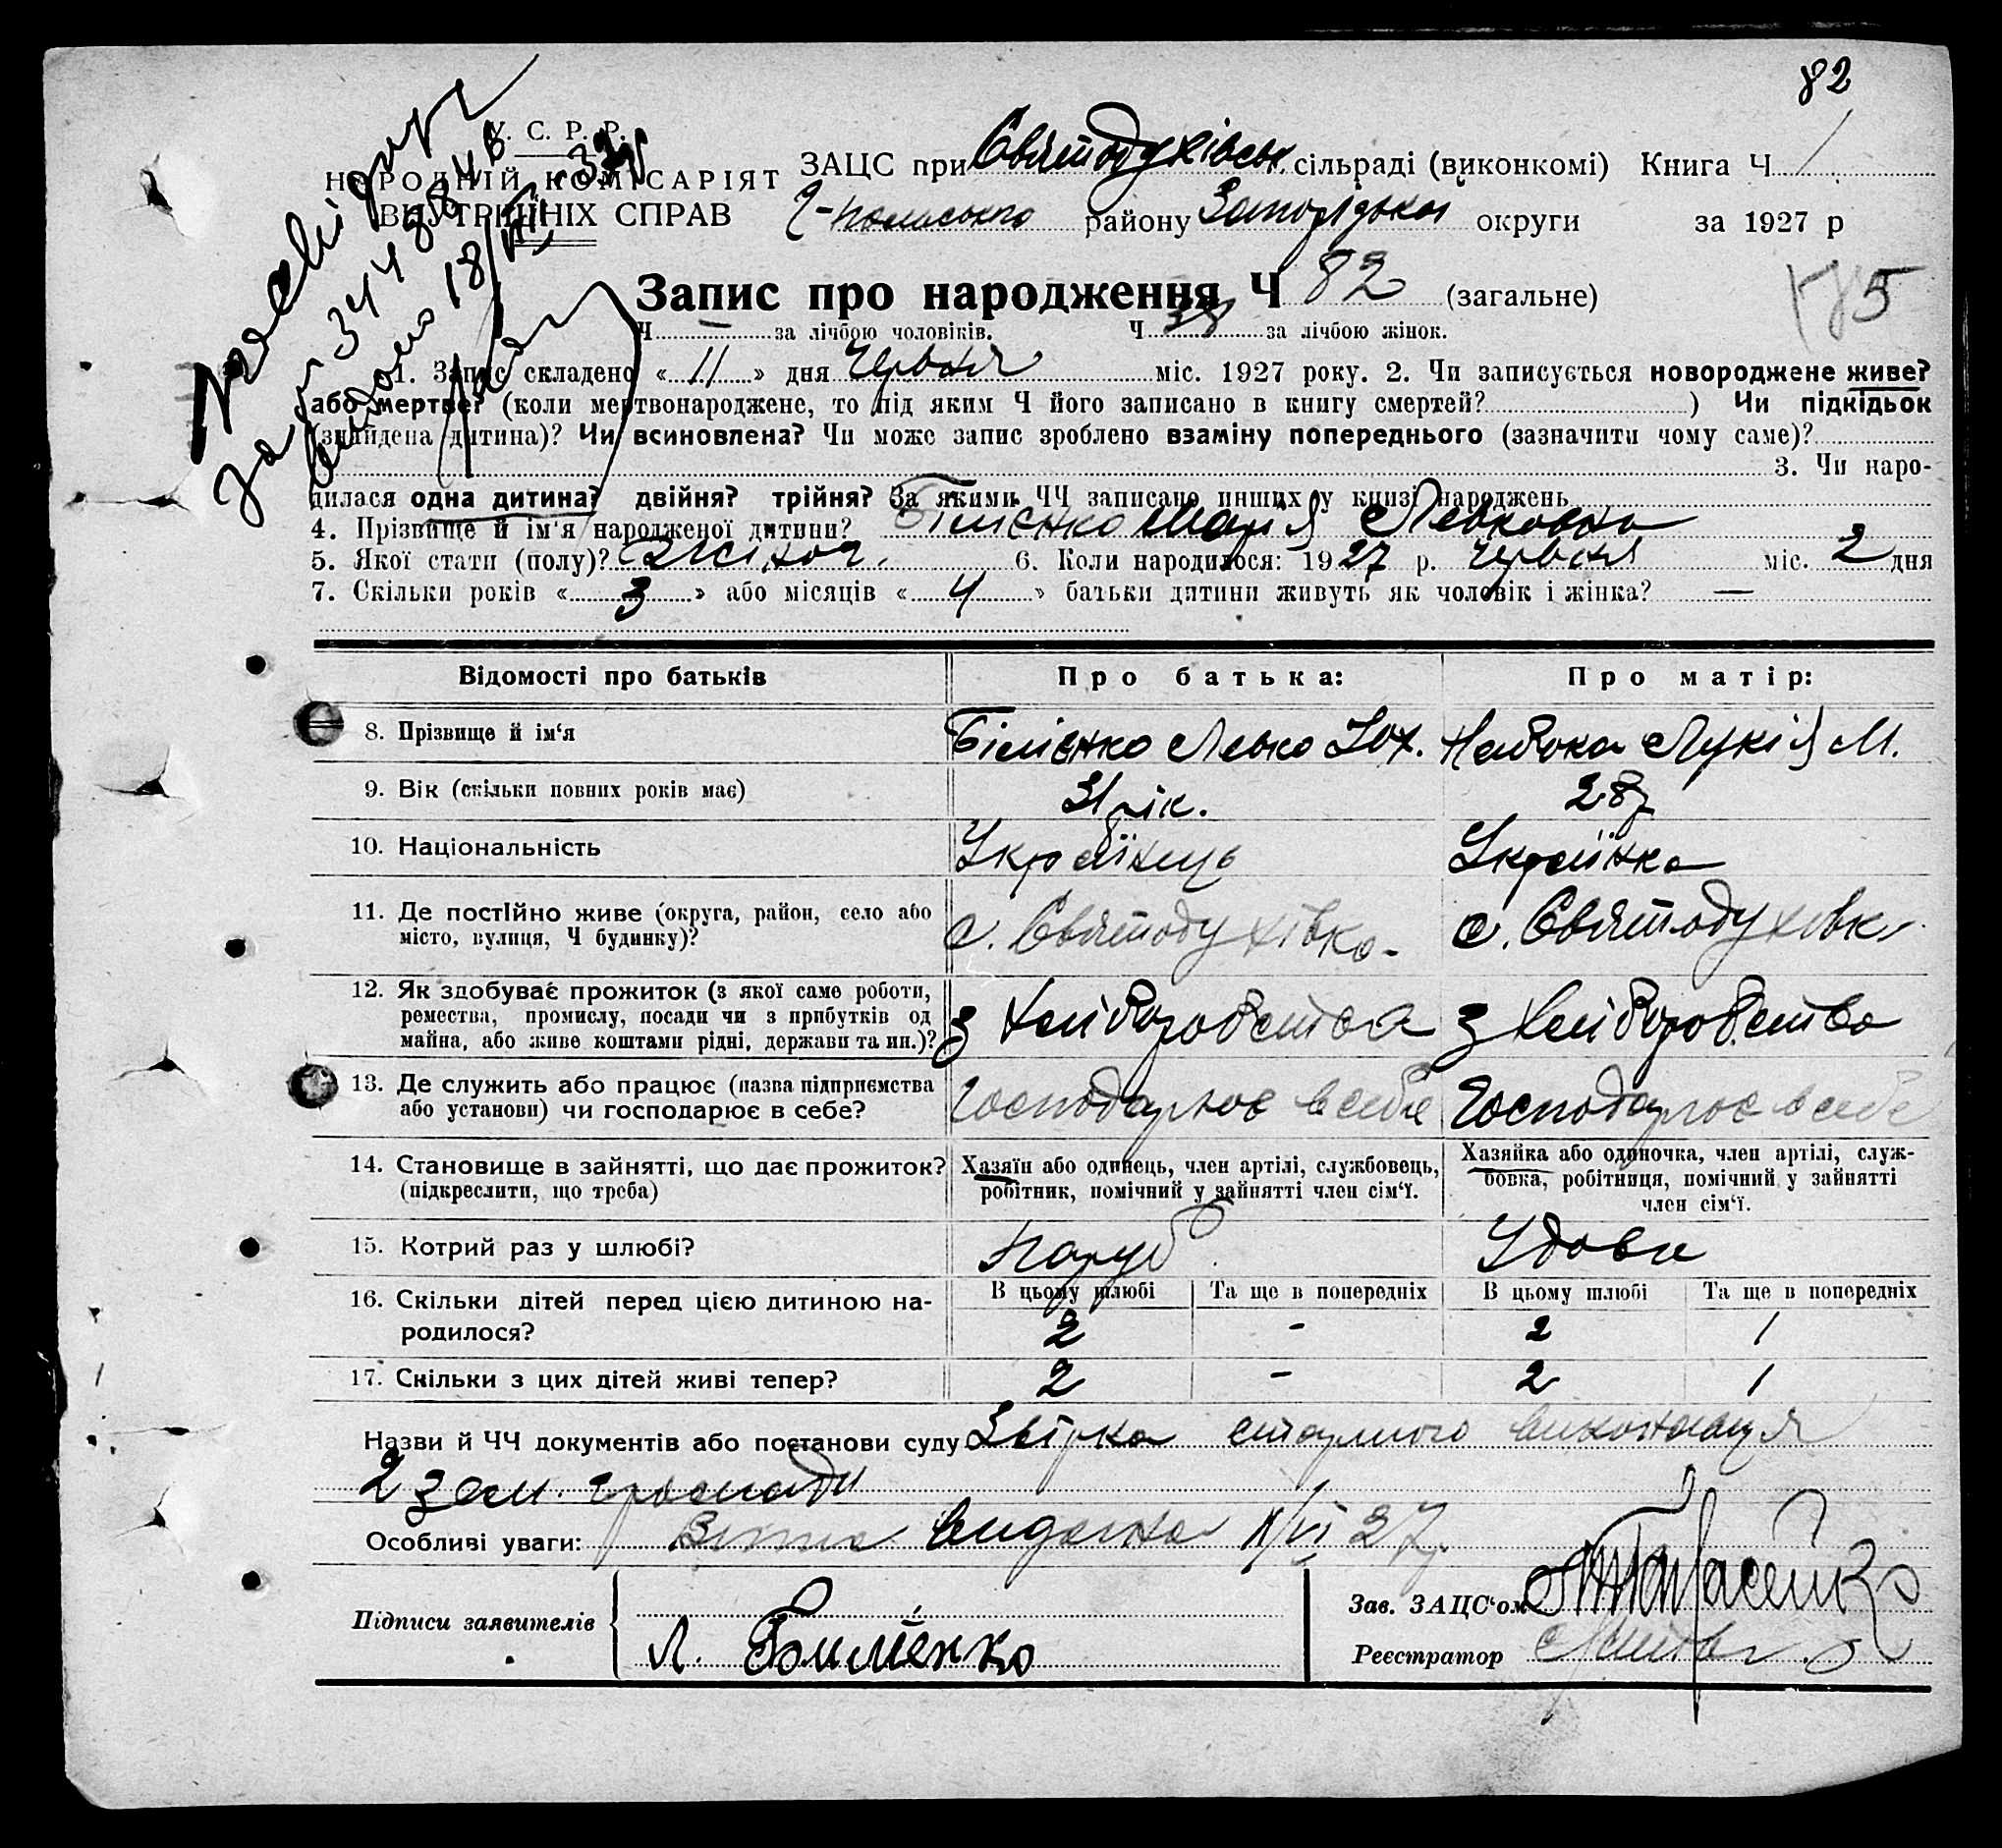 82
У. С. Р. Р.
НАРОДНІЙ КОМІСАРІЯТ
ВНУТРІШНІХ СПРАВ
ЗАЦС при Святодухівськ. сільраді (виконкомі) Книга Ч 1
району Запорізької округи за 1927 р
Запис про народження Ч 82 (загальне)
175
Ч — за лічбою чоловіків. Ч за лічбою жінок.
1. Запис складено « 11 » дня Червня міс. 1927 року. 2. Чи записується новороджене живе?
або мертве? (коли мертвонароджене, то під яким Ч його записано в книгу смертей? ) Чи підкідьок
(знайдена дитина)? Чи всиновлена? Чи може запис зроблено взаміну попереднього (зазначити чому саме)?
3. Чи наро-
дилася одна дитина? двійня? трійня? За якими ЧЧ записано инших у книзі народжень
4. Прізвище й ім'я народженої дитини? Білієнко Марія Левковна
5. Якої стати (полу)? жіноч. 6. Коли народилося: 1927 р. Червня міс. 2 дня
7. Скільки років « 3 » або місяців « 4 » батьки дитини живуть як чоловік і жінка? —
Відомості про батьків Про батька: Про матір:
8. Прізвище й ім'я Білієнко Левко Юх. Набока Лукія М.
9. Вік (скільки повних років має) 31 рік. 28
10. Національність Українець Українка
11. Де постійно живе (округа, район, село або
місто, вулиця, Ч будинку)? с. Святодухівка. с. Святодухівк
12. Як здобуває прожиток (з якої саме роботи,
ремества, промислу, посади чи з прибутків од
майна, або живе коштами рідні, держави та ин.)? З хліборобства З хліборобства
13. Де служить або працює (назва підприємства
або установи) чи господарює в себе? Господарює в себе Господарює в себе
14. Становище в зайнятті, що дає прожиток?
(підкреслити, що треба)
Хазяїн або одинець, член артілі, службовець,
робітник, помічний у зайнятті член сім'ї.
Хазяйка або одиночка, член артілі, служ-
бовка, робітниця, помічний у зайнятті
член сім'ї.
15. Котрий раз у шлюбі? Паруб Удова
16. Скільки дітей перед цією дитиною на-
родилося?
В цьому шлюбі Та ще в попередніх В цьому шлюбі Та ще в попередніх
2 - 2 1
17. Скільки з цих дітей живі тепер? 2 - 2 1
Назви й ЧЧ документів або постанови суду Звірка виконавця
2 зем. громади
Особливі уваги: видана 11/VI 27
Підписи заявителів
Л. Билиенко
Зав. ЗАЦС'ом Тарасенко
Реєстратор